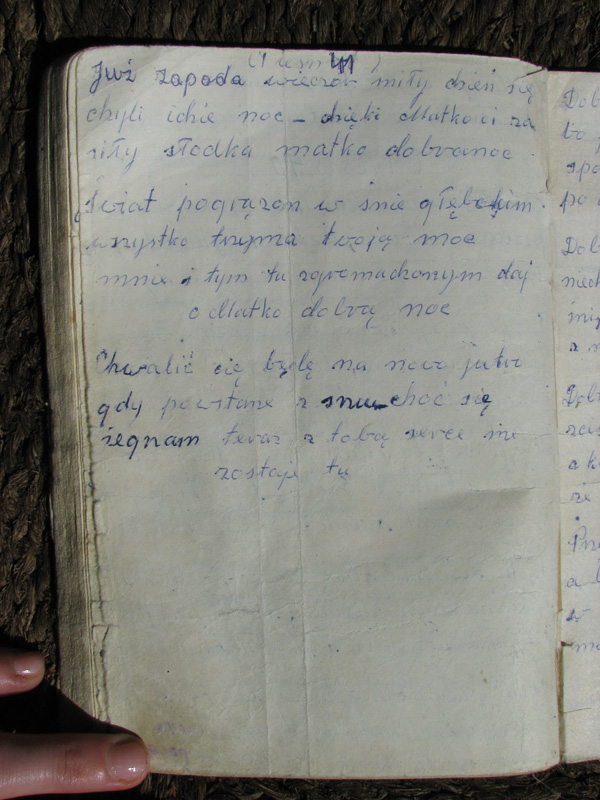 Już zapada wieczór miły dzień się
chyli idzie noc – dzięki Matko ci za
siły słodka matko dobranoc
świat pogrążon w śnie głębokim
wszystko trzyma twoją moc
mnie i tym tu zgromadzonym daj
o Matko dobrą noc
Chwalić cię będę na nowo jutro
gdy powstanę z snu choć się
żegnam teraz z tobą serce me
zostaje tu
Dob
to
spo
po
Dob
niech
z
Dob
a k
że
a
w